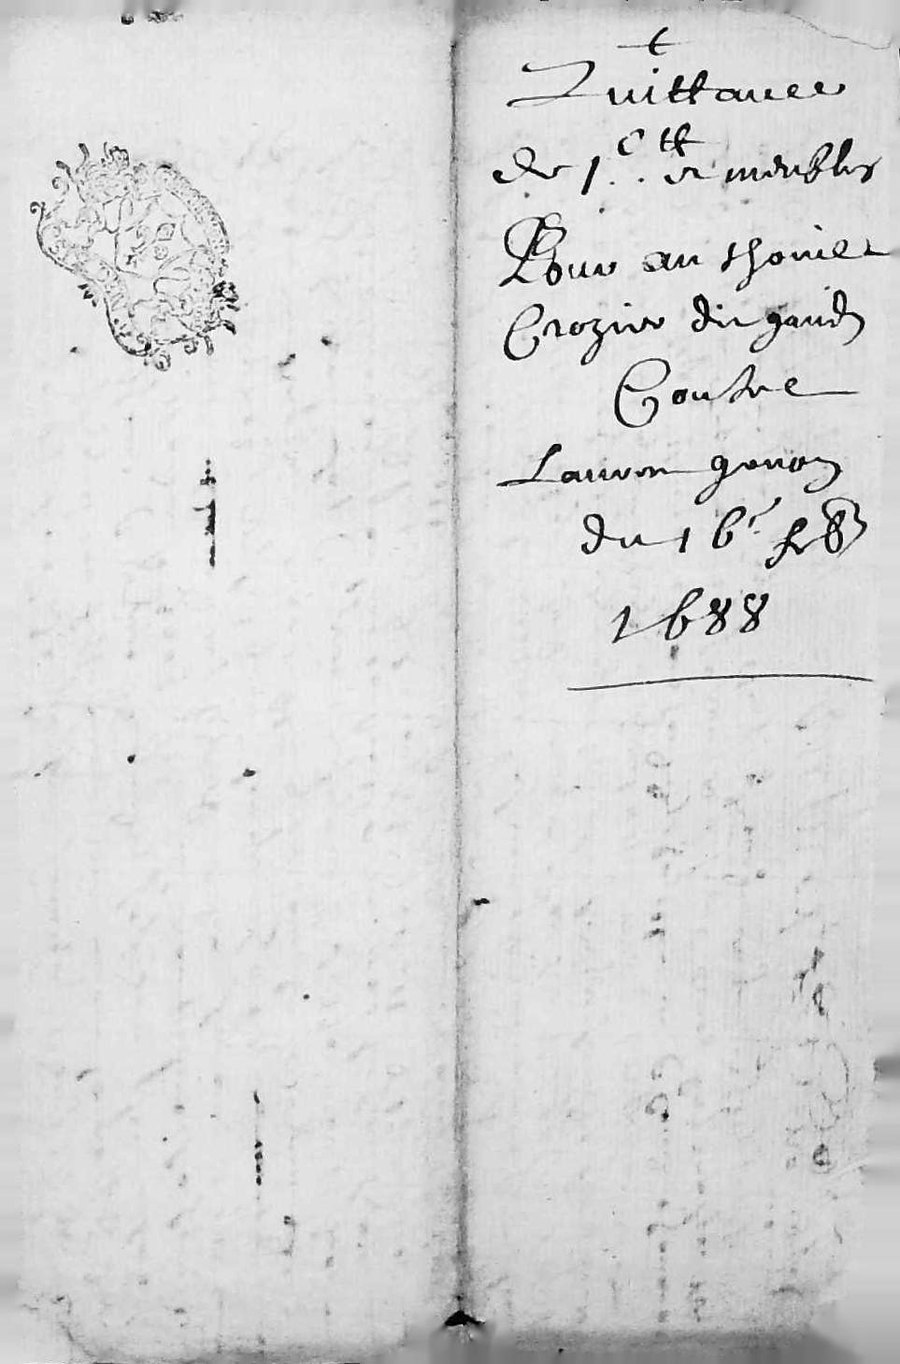 t
Quittance
de 1 c tt et meubles
Pour an thoine
Crozier dit gaud
Contre
Lauren genon
du 16e
1688